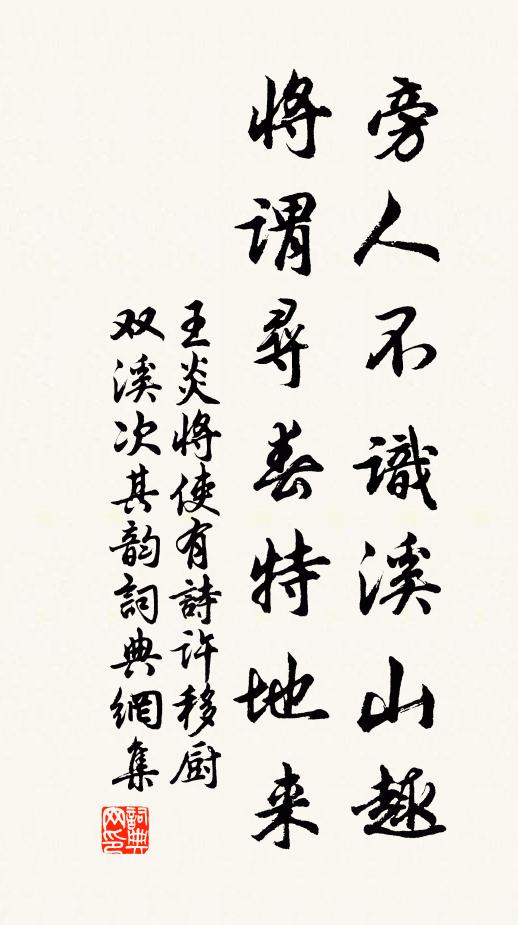 旁人不識溪山趣
將謂尋春特地来
王炎將使有詩许移厨
双溪次其韵詞典網集
詞典网印